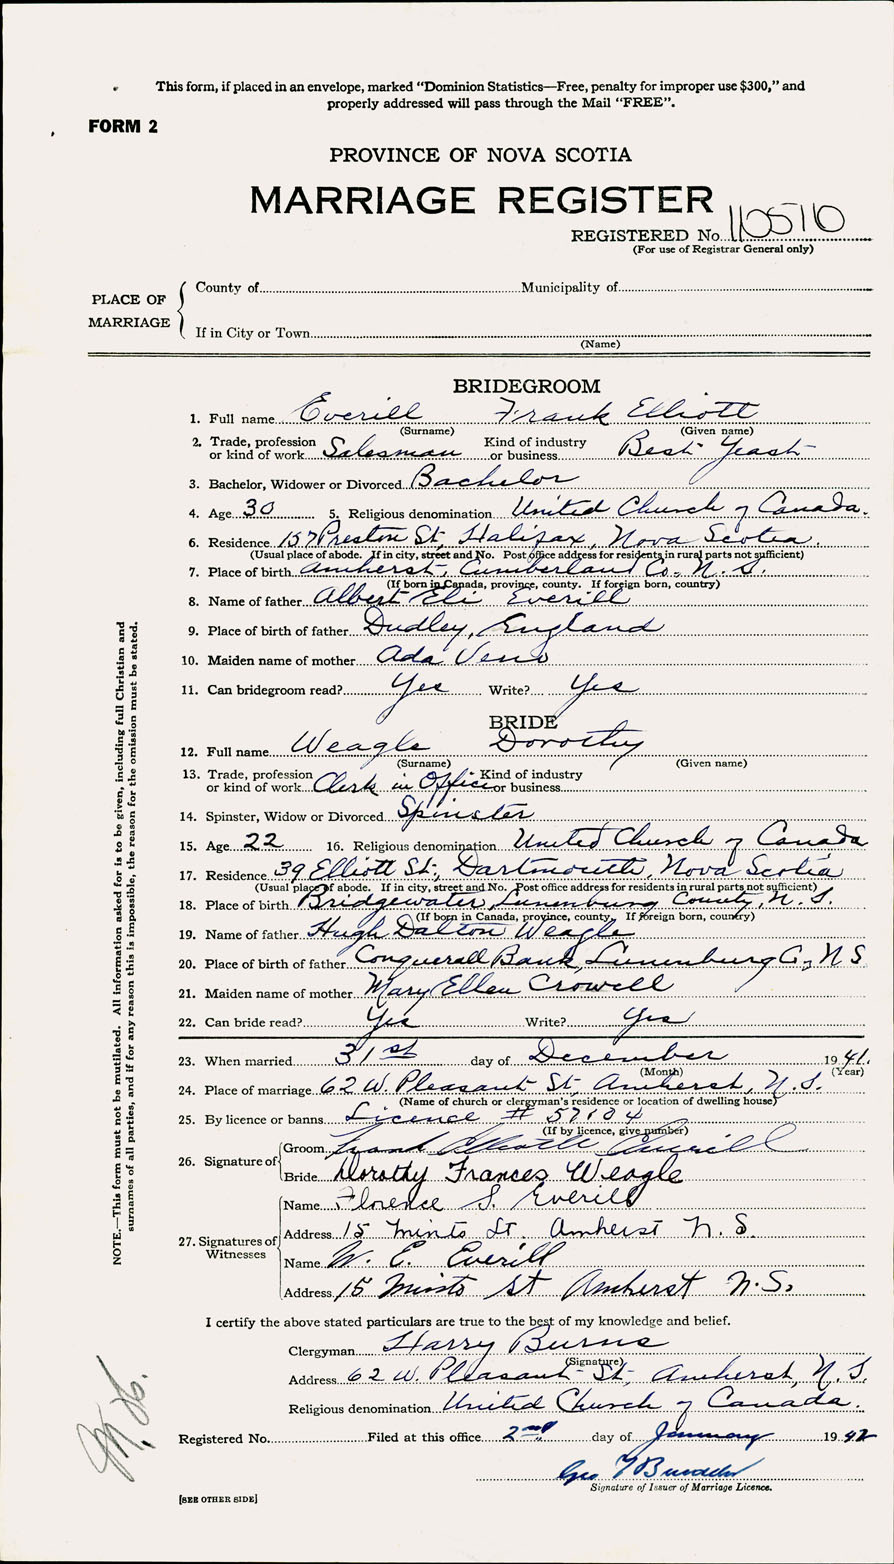 This form, if placed in an envelope, marked "Dominion Statistics—Free, penalty for improper use $300," and
properly addressed will pass through the Mail "FREE".
FORM 2
PROVINCE OF NOVA SCOTIA
MARRIAGE REGISTER
REGISTERED No. 110510
(For use of Registrar General only)
PLACE OF MARRIAGE
County of Municipality of
If in City or Town
(Name)
BRIDEGROOM
1. Full name Everill Frank Elliott
(Surname) (Given name)
2. Trade, profession or kind of work Salesman Kind of industry or business Best Yeast
3. Bachelor, Widower or Divorced Bachelor
4. Age 30 5. Religious denomination United Church of Canada.
6. Residence 157 Preston St, Halifax, Nova Scotia.
(Usual place of abode. If in city, street and No. Post office address for residents in rural parts not sufficient)
7. Place of birth Amherst, Cumberland Co., N. S.
(If born in Canada, province, county. If foreign born, country)
8. Name of father Albert Eli Everill
9. Place of birth of father Dudley, England
10. Maiden name of mother Ada Veno
11. Can bridegroom read? Yes Write? Yes
BRIDE
12. Full name Weagle Dorothy
(Surname) (Given name)
13. Trade, profession or kind of work Clerk in Office Kind of industry or business
14. Spinster, Widow or Divorced Spinster
15. Age 22 16. Religious denomination United Church of Canada
17. Residence 39 Elliott St., Dartmouth, Nova Scotia
(Usual place of abode. If in city, street and No. Post office address for residents in rural parts not sufficient)
18. Place of birth Bridgewater, Lunenburg County, N. S.
(If born in Canada, province, county. If foreign born, country)
19. Name of father Hugh Dalton Weagle
20. Place of birth of father Conquerall Bank, Lunenburg Co, N S
21. Maiden name of mother Mary Ellen Crowell
22. Can bride read? Yes Write? Yes
23. When married 31st day of December 1941.
(Month) (Year)
24. Place of marriage 62 W. Pleasant St, Amherst, N. S.
(Name of church or clergyman's residence or location of dwelling house)
25. By licence or banns Licence # 57184
(If by licence, give number)
26. Signature of
Groom Frank Elliott Everill
Bride Dorothy Frances Weagle
27. Signatures of Witnesses
Name Florence S. Everill
Address 15 Minto St. Amherst N. S.
Name W. E. Everill
Address 15 Minto St Amherst N. S.
I certify the above stated particulars are true to the best of my knowledge and belief.
Clergyman Harry Burns
(Signature)
Address 62 W. Pleasant St, Amherst, N. S.
Religious denomination United Church of Canada.
Registered No. Filed at this office 2nd day of January 1942
Signature of Issuer of Marriage Licence.
[SEE OTHER SIDE]
NOTE.—This form must not be mutilated. All information asked for is to be given, including full Christian and
surnames of all parties, and if for any reason this is impossible, the reason for the omission must be stated.